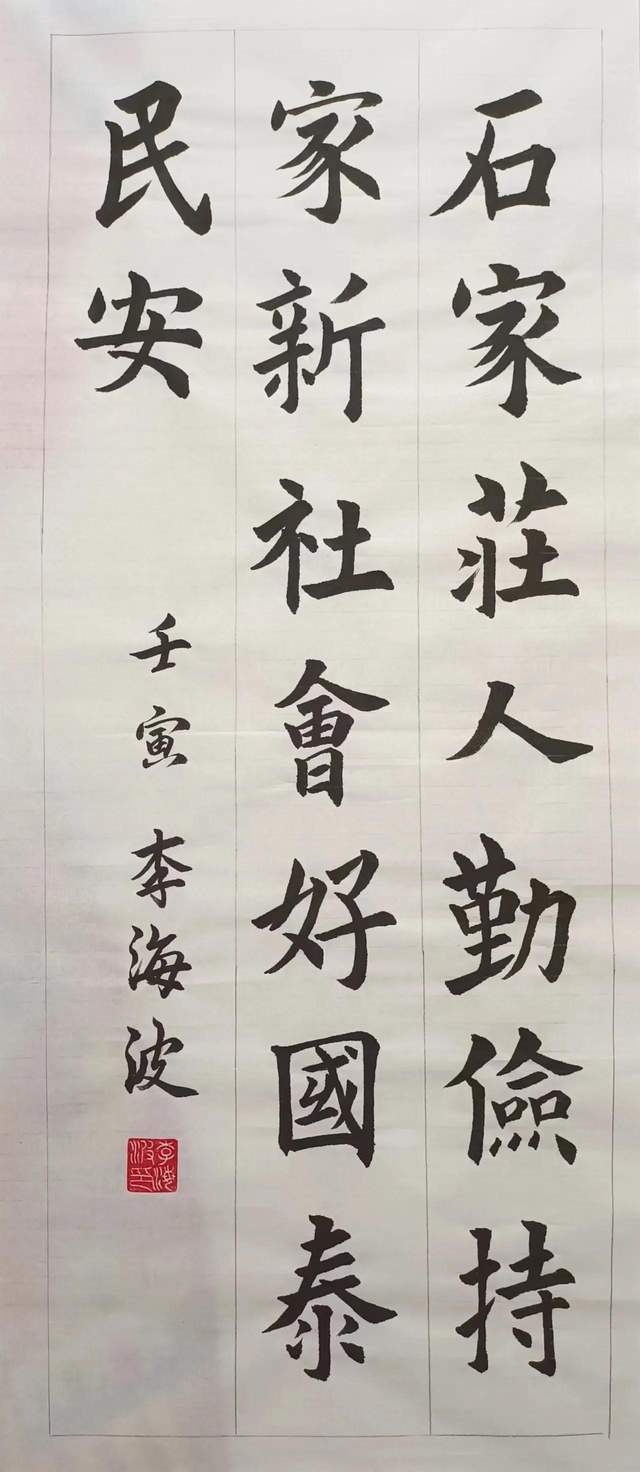 石家莊人勤儉持
家新社會好國泰
民安
壬寅 李海波
李海波印